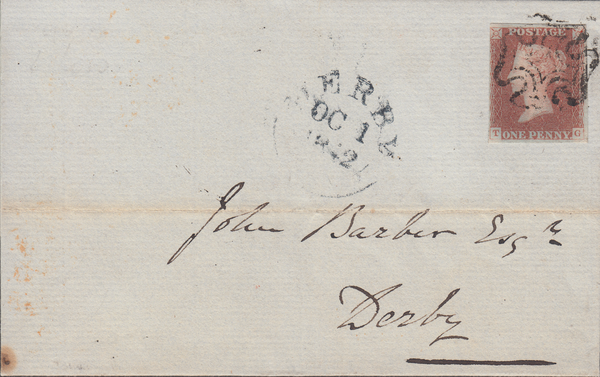 POSTAGE
ONE PENNY
T G
DERBY
OC 1
1842
John Barber Esqr
Derby